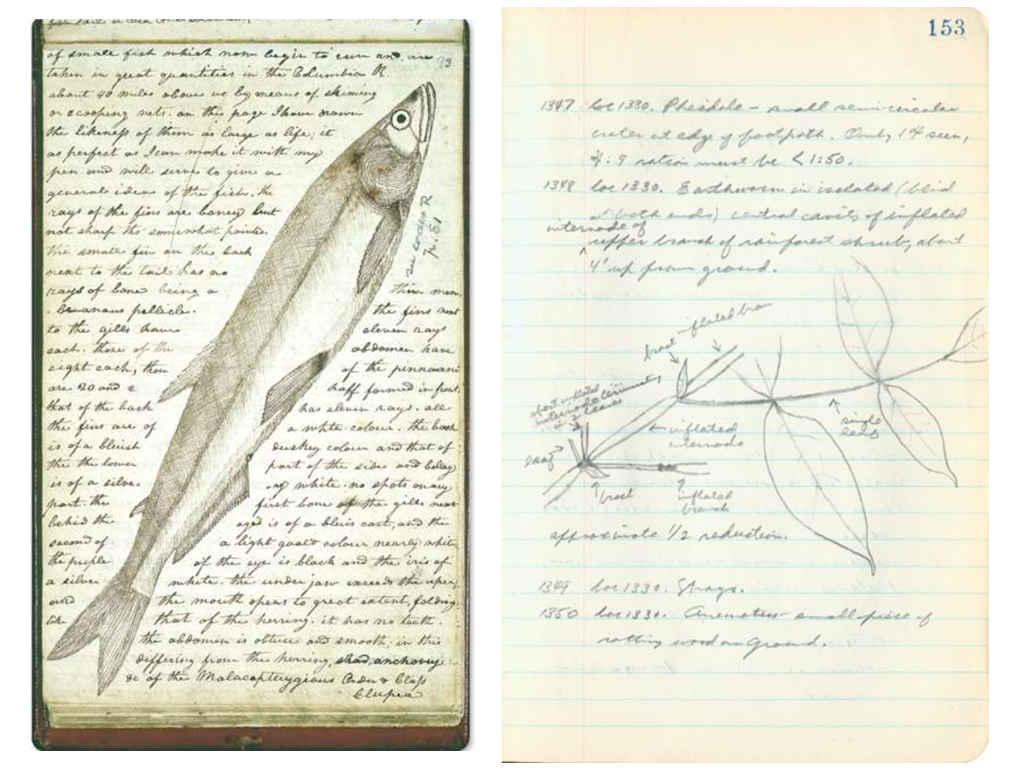 of small fish which now begin to run and are
93
taken in great quantities in the Columbia R.
about 40 miles above us by means of skiming
or scooping nets. on this page I have drawn
the likeness of them as large as life; it
as perfect as I can make it with my
pen and will serve to give a
general idea of the fish. the
rays of the fins are boney but
not sharp tho' somewhat pointed.
the small fin on the back
next to the tail has no
rays of bone being a
pellicle.
thin mem
to the gills have
the fins next
eleven rays
each. those of the
abdomen have
eight each, those
of the pinnaani
are 20 and 2
half formed in front.
that of the back
has eleven rays. all
the fins are of
a white colour. the back
is of a bluish
duskey colour and that of
the the lower
part of the sides and belley
is of a silve-
-ry white. no spots on any
part. the
first bone of the gills next
behid the
eye is of a bluis cast, and the
second of
a light goald colour nearly white
the puple
of the eye is black and the iris of
a silver
white. the under jaw exceeds the uper;
and
the mouth opens to great extent, folding
like
that of the herring. it has no teeth.
the abdomen is obtuse and smooth; in this
differing from the herring, shad anchovy
&c of the Malacopterygious Order & Class
Clupea
153
1347 loc 1330. Pheidole - small semicircular
crater at edge of footpath. Only 14 seen,
ratio must be < 1:50.
1348 loc 1330. Earthworm in isolated (
at both ends) central cavity of inflated
internode of
upper branch of rainforest shrub, about
4' up from ground.
bract inflated bran
inflated
internode
single
leaf
leaf
bract
inflated
branch
approximate 1/2 reduction.
1349 loc 1330. Strays.
1350 loc 1330. small piece of
rotting wood on ground.